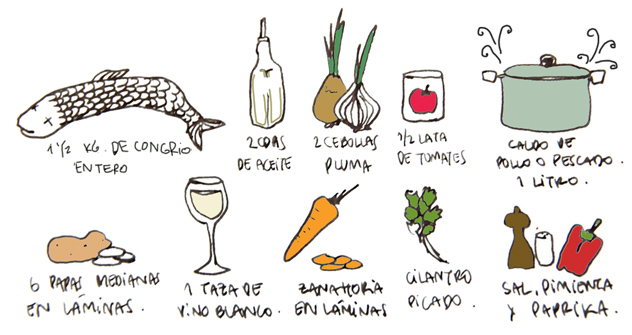 1 1/2 KG. DE CONGRIO
ENTERO
2 CDAS
DE ACEITE
2 CEBOLLAS
PLUMA
1/2 LATA
DE TOMATES
CALDO DE
POLLO O PESCADO.
1 LITRO.
6 PAPAS MEDIANAS
EN LÁMINAS.
1 TAZA DE
VINO BLANCO.
ZANAHORIA
EN LÁMINAS
CILANTRO
PICADO.
SAL, PIMIENTA
Y PAPRIKA.